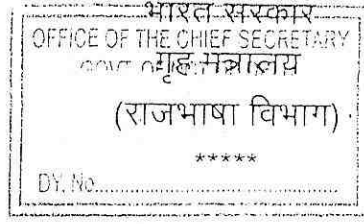 भारत सरकार
OFFICE OF THE CHIEF SECRETARY
गृह मंत्रालय
(राजभाषा विभाग)
*****
DY. No.